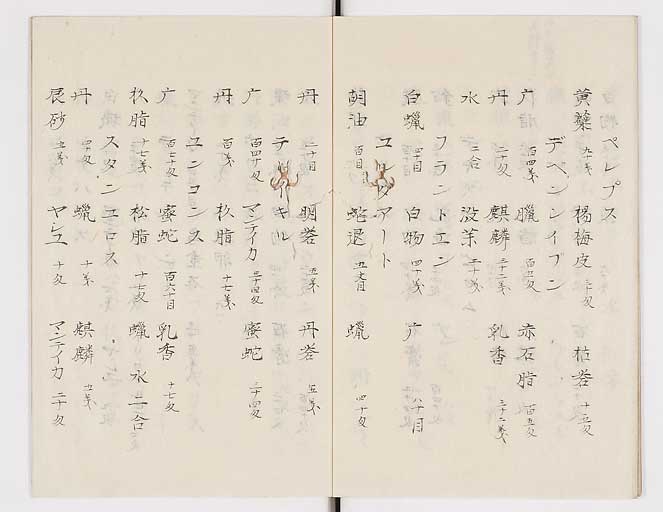 ペレプス
黄蘗 九十匁 楊梅皮 三十匁 枯礬 十五匁
デペンシイブン
广 百四匁 臘 百五匁 赤石脂 百五匁
丹 二十匁 麒麟 三十二匁 乳香 三十二匁
水 三合 没薬 二十匁
フラントエン
白蠟 四十目 白物 四十匁 广 八十目
ユリタアート
胡油 百目 蛇退 五文目 蠟 四十匁
丹 二十目 明礬 五匁 丹礬 五匁
テルイキル
广 百四十匁 マンテイカ 三十四匁 蜜蛇 二十四匁
丹 百匁 松脂 十七匁
ユンコンス
广 百七十匁 蜜蛇 百六十目 乳香 十七匁
松脂 十七匁 松脂 十七匁 蠟 水一合
スタンエロス
丹 四十匁 蠟 十匁 麒麟 五匁
辰砂 五匁 ヤシユ 十匁 マンテイカ 二十匁